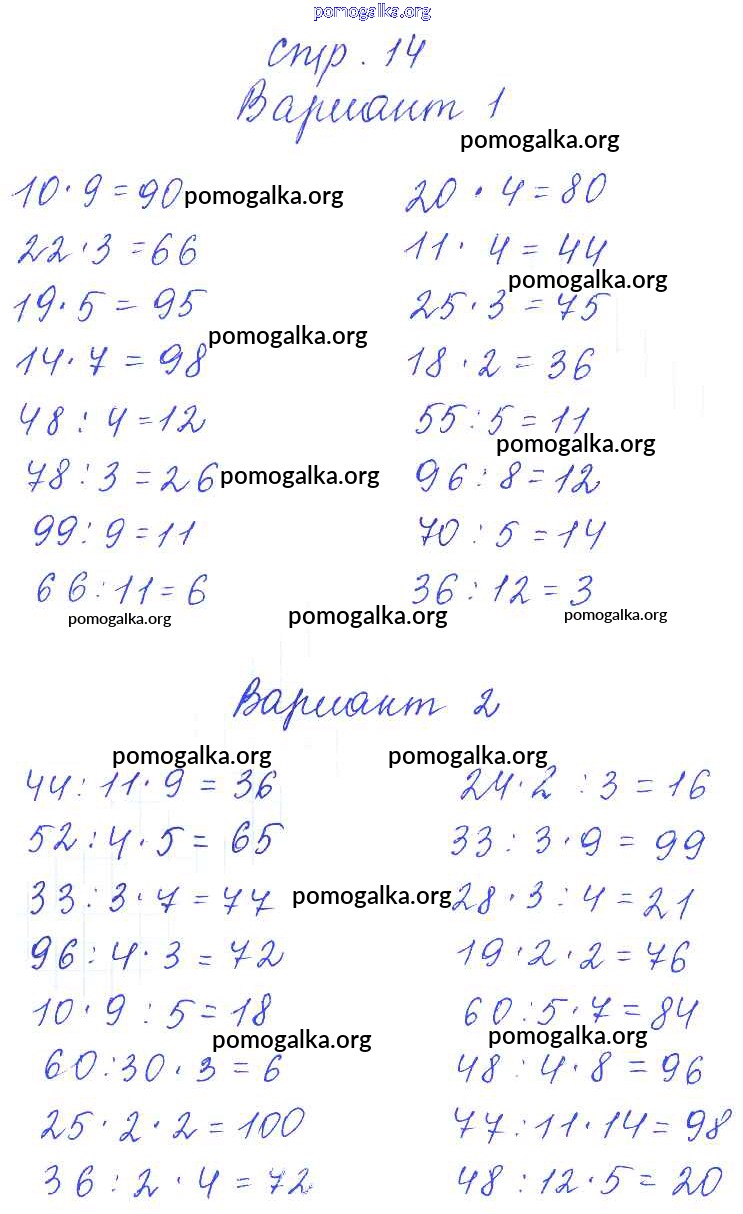 pomogalka.org
стр. 14
Вариант 1
pomogalka.org
10·9=90 pomogalka.org 20·4=80
22·3=66 11·4=44
pomogalka.org
19·5=95 25·3=75
pomogalka.org
14·7=98 18·2=36
48:4=12 55:5=11
pomogalka.org
78:3=26 pomogalka.org 96:8=12
99:9=11 70:5=14
66:11=6 36:12=3
pomogalka.org pomogalka.org pomogalka.org
Вариант 2
pomogalka.org pomogalka.org
44:11·9=36 24·2:3=16
52:4·5=65 33:3·9=99
33:3·7=77 pomogalka.org 28·3:4=21
96:4·3=72 19·2·2=76
10·9:5=18 60:5·7=84
pomogalka.org pomogalka.org
60:30·3=6 48:4·8=96
25·2·2=100 77:11·14=98
36:2·4=72 48:12·5=20